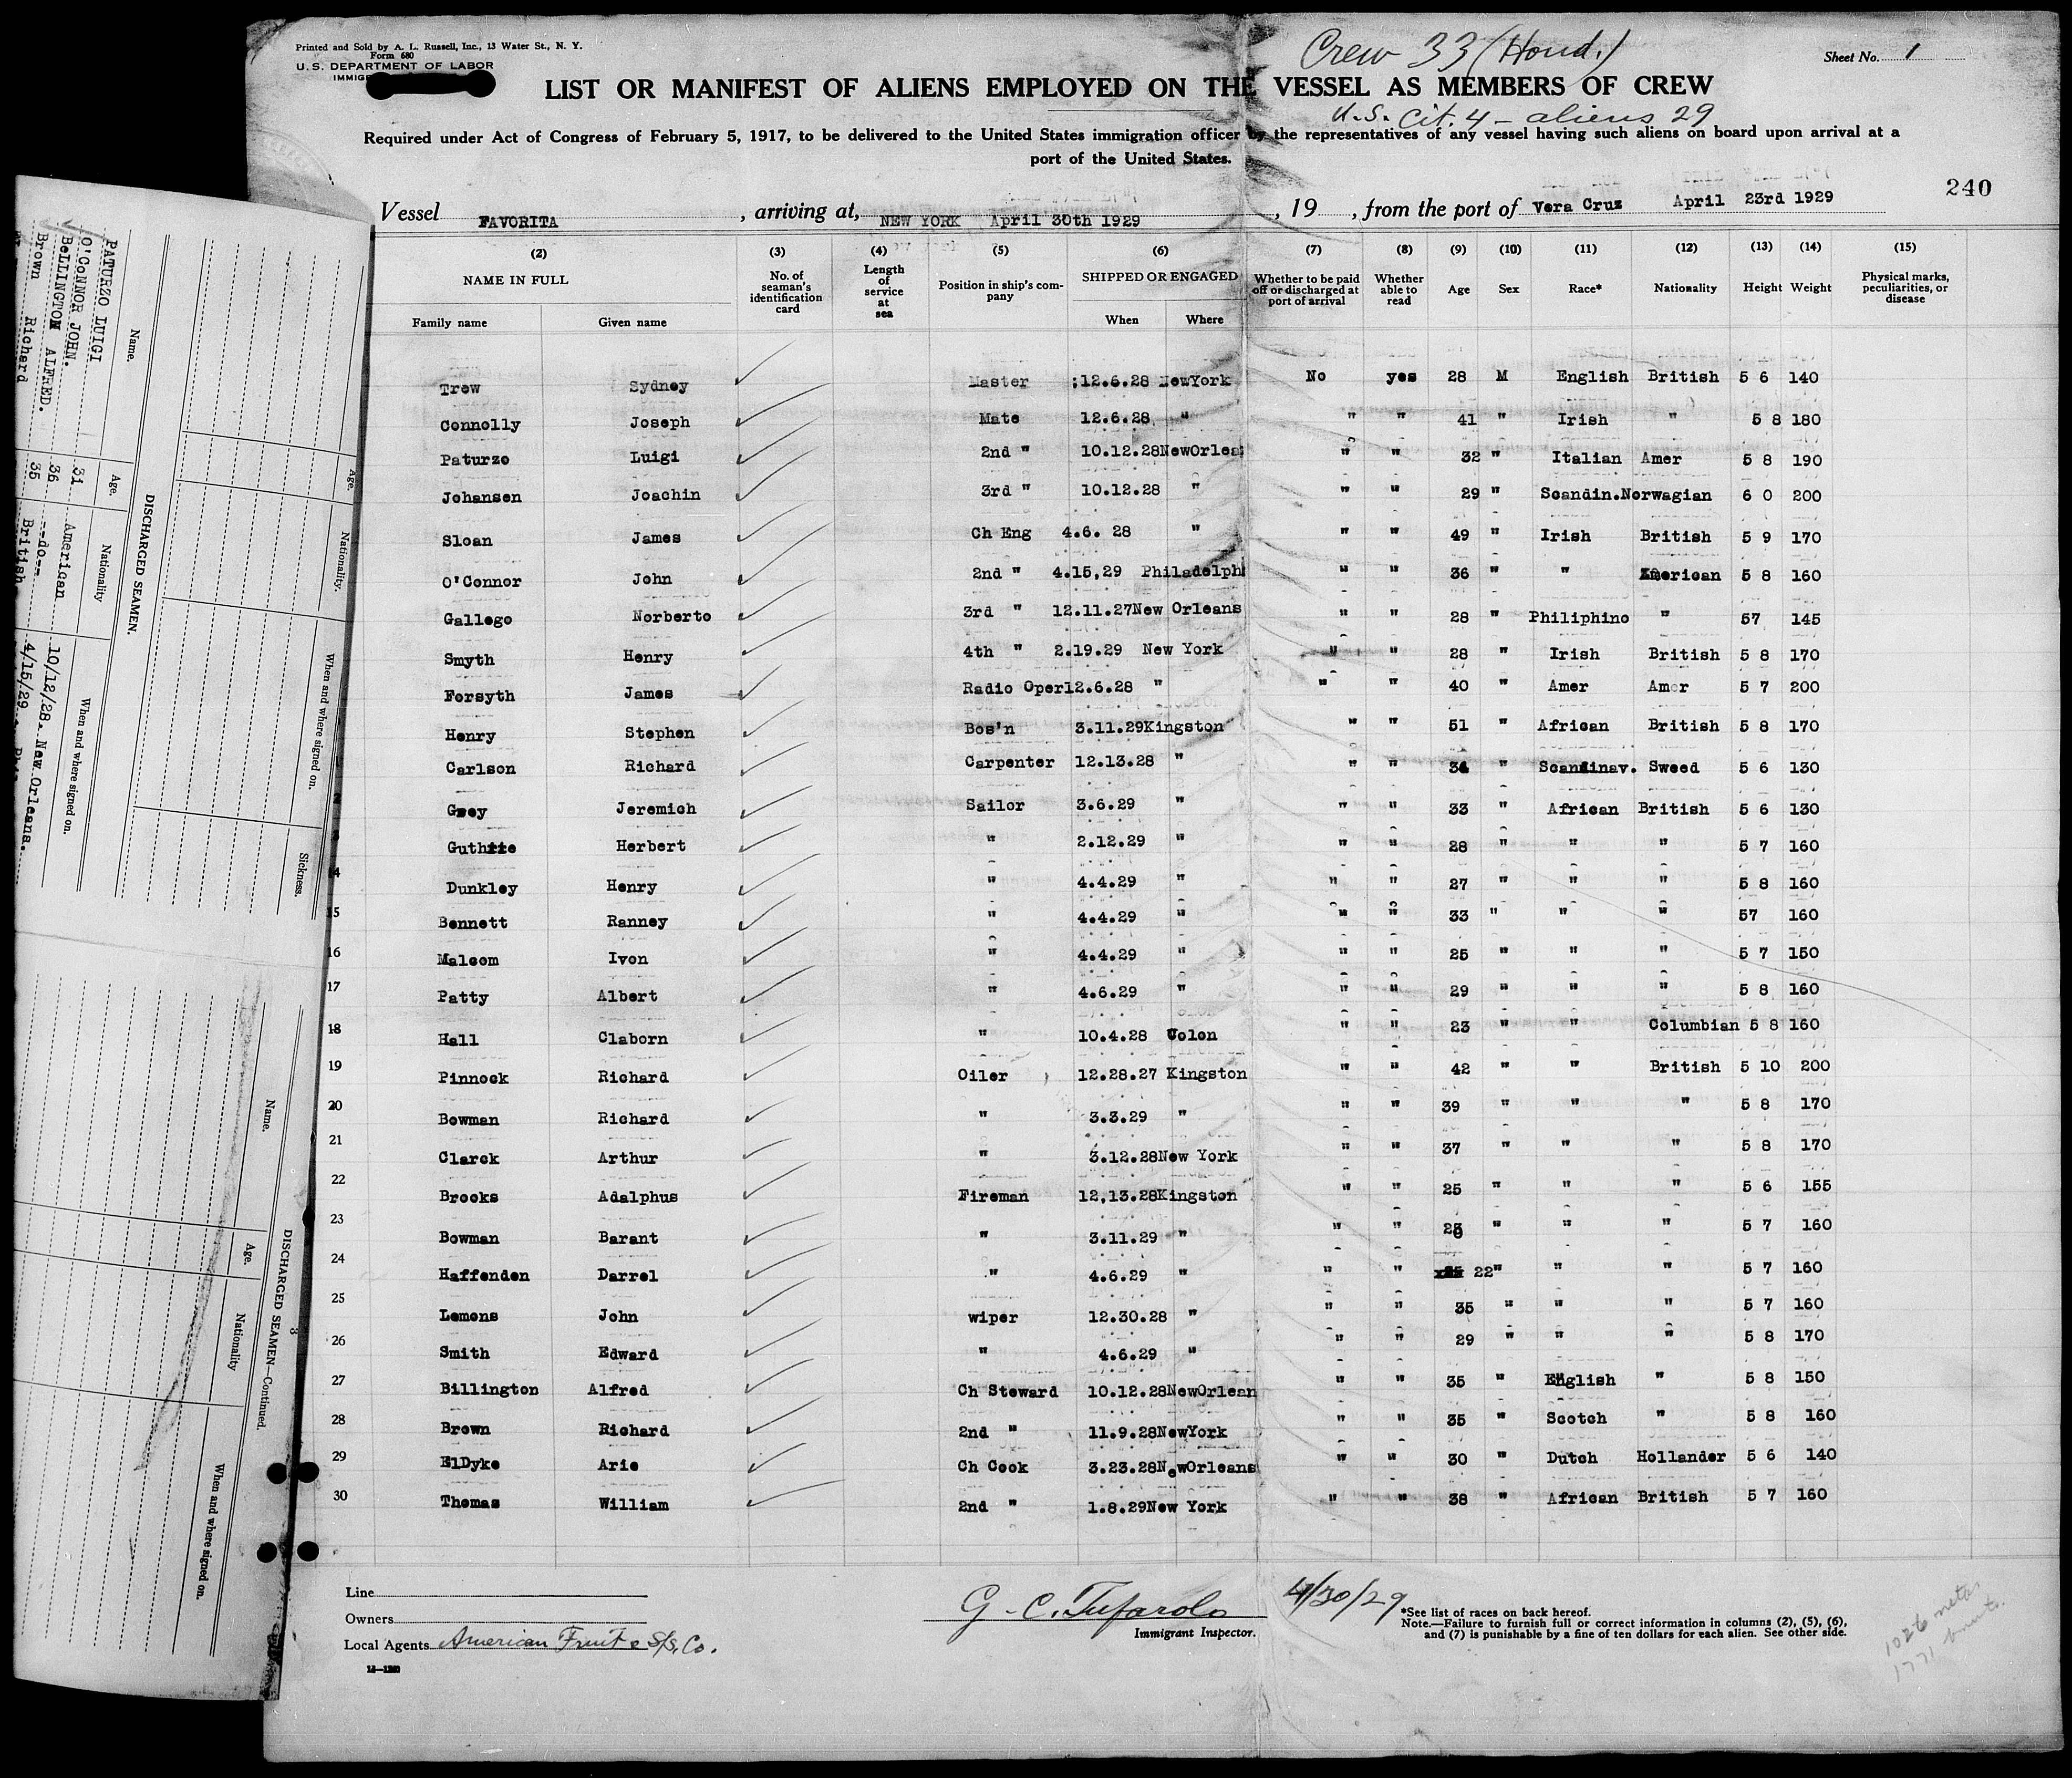 Printed and Sold by A. L. Russell, Inc., 13 Water St., N. Y.
Form 680
U. S. DEPARTMENT OF LABOR
IMMIG
Crew 33 (Hond.)
Sheet No. 1
LIST OR MANIFEST OF ALIENS EMPLOYED ON THE VESSEL AS MEMBERS OF CREW
U.S. Cit. 4 - aliens 29
Required under Act of Congress of February 5, 1917, to be delivered to the United States immigration officer by the representatives of any vessel having such aliens on board upon arrival at a
port of the United States.
240
Vessel FAVORITA , arriving at, NEW YORK April 30th 1929 , 19 , from the port of Vera Cruz April 23rd 1929
(2) (3) (4) (5) (6) (7) (8) (9) (10) (11) (12) (13) (14) (15)
NAME IN FULL No. of seaman's identification card Length of service at sea Position in ship's company SHIPPED OR ENGAGED Whether to be paid off or discharged at port of arrival Whether able to read Age Sex Race* Nationality Height Weight Physical marks, peculiarities, or disease
Family name Given name When Where
Trew Sydney Master :12.6.28 NewYork No yes 28 M English British 5 6 140
Connolly Joseph Mate 12.6.28 " " " 41 " Irish " 5 8 180
Paturzo Luigi 2nd " 10.12.28NewOrlea " " 32 " Italian Amer 5 8 190
Johansen Joachin 3rd " 10.12.28 " " " 29 " Scandin.Norwagian 6 0 200
Sloan James Ch Eng 4.6. 28 " " " 49 " Irish British 5 9 170
O'Connor John 2nd " 4.15,29 Philadelph " " 36 " " American 5 8 160
Gallego Norberto 3rd " 12.11.27New Orleans " " 28 " Philiphino " 57 145
Smyth Henry 4th " 2.19.29 New York " " 28 " Irish British 5 8 170
Forsyth James Radio Oper12.6.28 " " " 40 " Amer Amer 5 7 200
Henry Stephen Bos'n 3.11.29Kingston " " 51 " African British 5 8 170
1 Carlson Richard Carpenter 12.13.28 " " " 34 " Scandinav. Sweed 5 6 130
2 Grey Jeremich Sailor 3.6.29 " " " 33 " African British 5 6 130
3 Guthrie Herbert " 2.12.29 " " " 28 " " " 5 7 160
14 Dunkley Henry " 4.4.29 " " " 27 " " " 5 8 160
15 Bennett Ranney " 4.4.29 " " " 33 " " " 57 160
16 Malcom Ivon " 4.4.29 " " " 25 " " " 5 7 150
17 Patty Albert " 4.6.29 " " " 29 " " " 5 8 160
18 Hall Claborn " 10.4.28 Colon " " 23 " " Columbian 5 8 160
19 Pinnock Richard Oiler 12.28.27 Kingston " " 42 " " British 5 10 200
20 Bowman Richard " 3.3.29 " " " 39 " " " 5 8 170
21 Clarck Arthur " 3.12.28New York " " 37 " " " 5 8 170
22 Brooks Adalphus Fireman 12,13.28Kingston " " 25 " " " 5 6 155
23 Bowman Barant " 3.11.29 " " " " " " 5 7 160
24 Haffenden Darrel " 4.6.29 " " " 22" " " 5 7 160
25 Lemons John wiper 12.30.28 " " " 35 " " " 5 7 160
26 Smith Edward " 4.6.29 " " " 29 " " " 5 8 170
27 Billington Alfred Ch Steward 10.12.28NewOrlean " " 35 " English " 5 8 150
28 Brown Richard 2nd " 11.9.28NewYork " " 35 " Scotch " 5 8 160
29 ElDyke Arie Ch Cook 3.23.28NewOrleans " " 30 " Dutch Hollander 5 6 140
30 Thomas William 2nd " 1.8.29New York " " 38 " African British 5 7 160
Line
Owners
Local Agents American Fruit & S/S. Co.
14—1240
G. C. Tufarolo
Immigrant Inspector.
4/30/29
*See list of races on back hereof.
Note.—Failure to furnish full or correct information in columns (2), (5), (6),
and (7) is punishable by a fine of ten dollars for each alien. See other side.
Age. Nationality. When and where signed on. Sickness.
DISCHARGED SEAMEN.
Name. Age. Nationality When and where signed on.
PATURZO LUIGI 31 American 10/12/28. New Orleans.
O'CoNNOR JOHN. 36 --do-- 4/15/29
BeLLINGTON ALFRED. 35 British
Brown Richard
DISCHARGED SEAMEN—Continued.
Name. Age. Nationality When and where signed on.